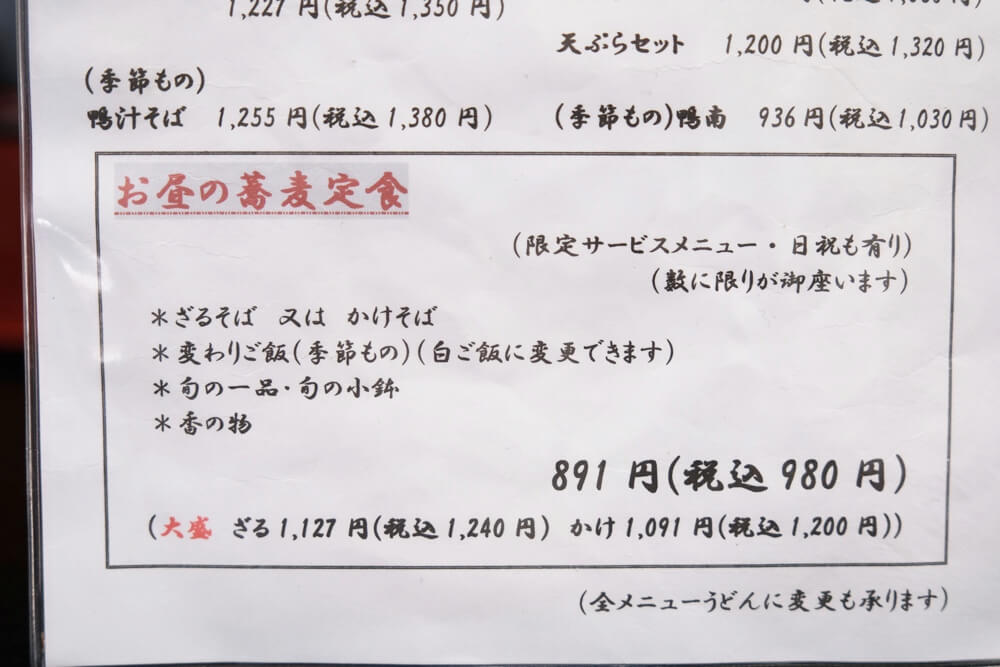 1,227 円(税込 1,350 円)
天ぷらセット 1,200 円(税込 1,320 円)
(季節もの)
鴨汁そば 1,255 円(税込 1,380 円)
(季節もの)鴨南 936 円(税込 1,030 円)
お昼の蕎麦定食
(限定サービスメニュー・日祝も有り)
(数に限りが御座います)
＊ざるそば 又は かけそば
＊変わりご飯(季節もの)(白ご飯に変更できます)
＊旬の一品・旬の小鉢
＊香の物
891 円(税込 980 円)
(大盛 ざる 1,127 円(税込 1,240 円) かけ 1,091 円(税込 1,200 円))
(全メニューうどんに変更も承ります)